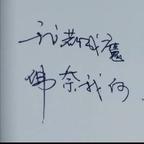 我若成魔
佛奈我何.